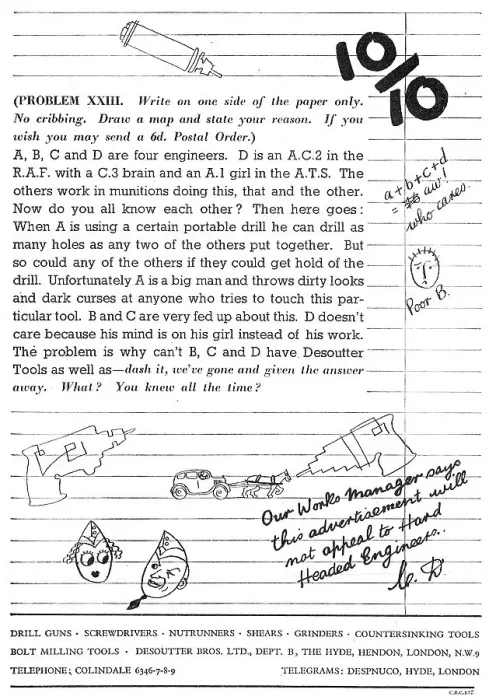 10/10
(PROBLEM XXIII. Write on one side of the paper only.
No cribbing. Draw a map and state your reason. If you
wish you may send a 6d. Postal Order.)
A, B, C and D are four engineers. D is an A.C.2 in the
R.A.F. with a C.3 brain and an A.1 girl in the A.T.S. The
others work in munitions doing this, that and the other.
Now do you all know each other? Then here goes:
When A is using a certain portable drill he can drill as
many holes as any two of the others put together. But
so could any of the others if they could get hold of the
drill. Unfortunately A is a big man and throws dirty looks
and dark curses at anyone who tries to touch this par-
ticular tool. B and C are very fed up about this. D doesn't
care because his mind is on his girl instead of his work.
The problem is why can't B, C and D have Desoutter
Tools as well as—dash it, we've gone and given the answer
away. What? You knew all the time?
a+b+c+d
= aw!
who cares.
Poor B.
Our Works Manager says
this advertisement will
not appeal to Hard
Headed Engineers..
C. D.
DRILL GUNS · SCREWDRIVERS · NUTRUNNERS · SHEARS · GRINDERS · COUNTERSINKING TOOLS
BOLT MILLING TOOLS · DESOUTTER BROS. LTD., DEPT. B, THE HYDE, HENDON, LONDON, N.W.9
TELEPHONE: COLINDALE 6346-7-8-9 TELEGRAMS: DESPNUCO, HYDE, LONDON